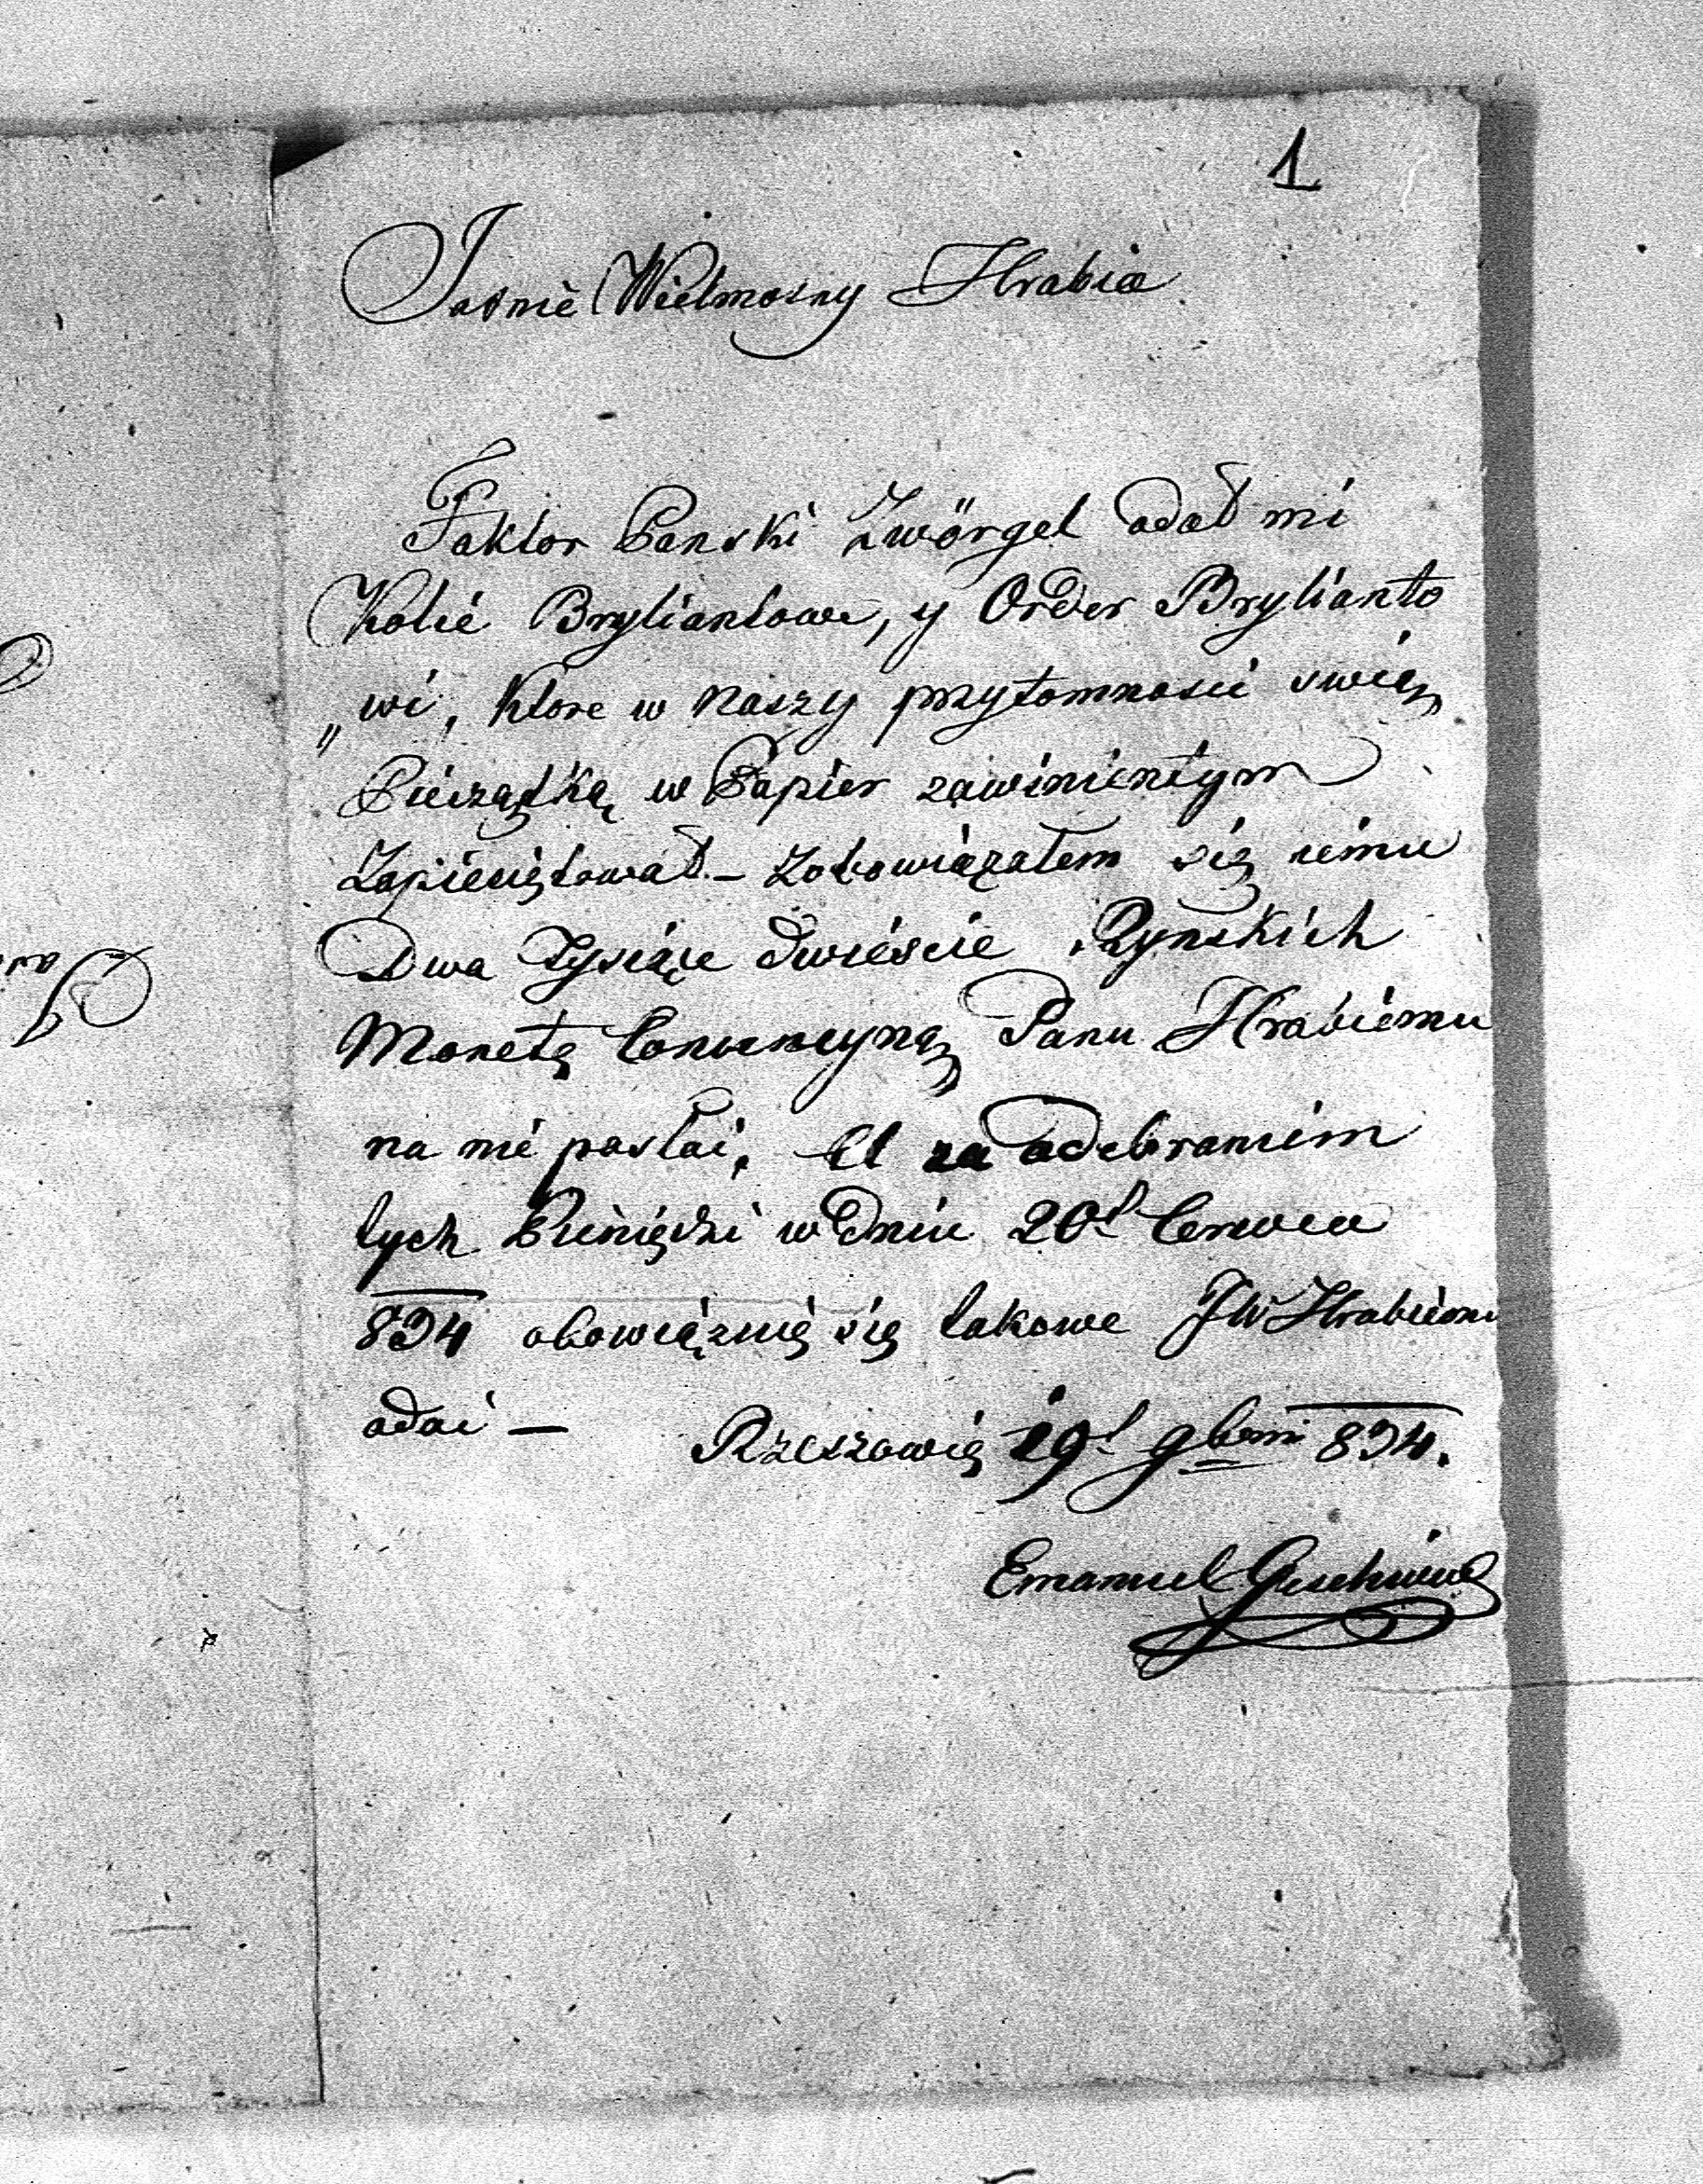 1
Jasnie Wielmozny Hrabia
Faktor Panski Zwörgel odał mi
Kolié Bryliantowe, y Order Brylianto
„wi, Ktore w naszy przytomnosci swią
Pieczątką w Papier zawinientym
Zapieciętował – Zobowiązałem się iému
Dwa Tysiące dwiéscie Rynskich
Monetą Conwencyną Panu Hrabiému
na mé posłai, A za odebraniem
tych Pieniędzi w dniu 20t Cerwca
834 obowięzuię się takowe JW Hrabiemu
odai – Rzeszowie 19t 9bris 834.
Emanuel